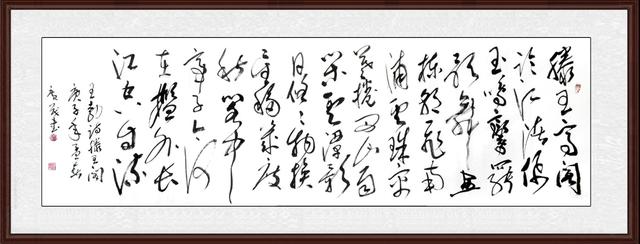 滕王高阁
临江渚佩
玉鸣鸾罢
歌舞画
栋朝飞南
浦云珠帘
暮卷西山雨
闲云潭影
日悠悠物换
星移几度
秋阁中
帝子今何
在槛外长
江空自流
王勃诗滕王阁
庚子年孟春
书